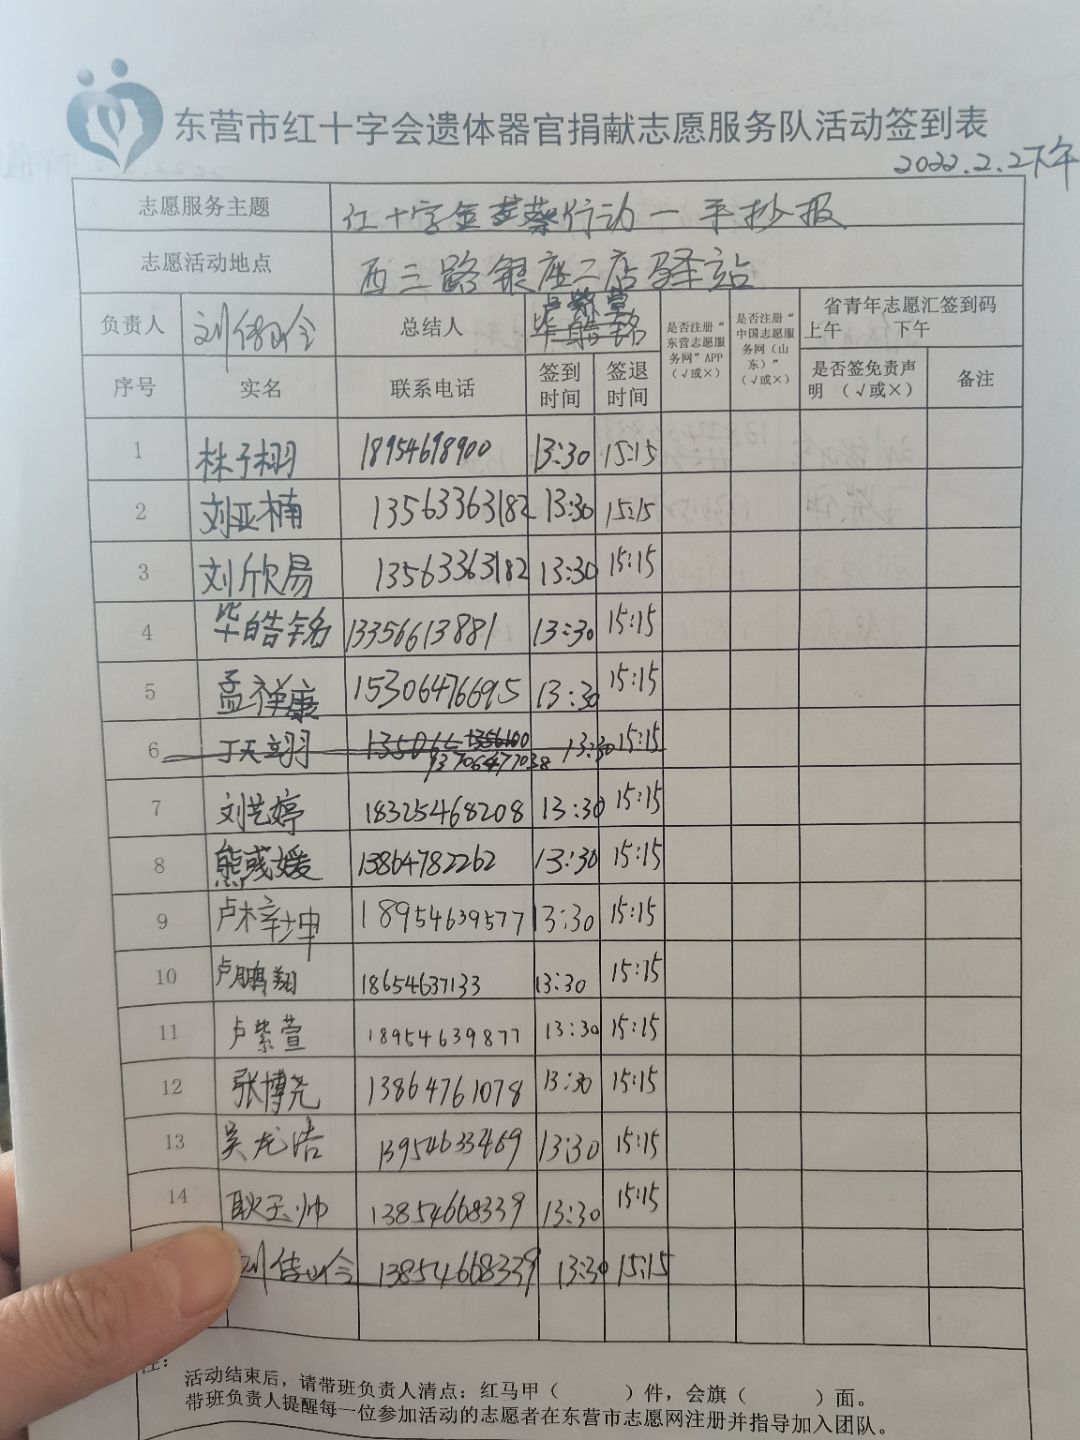 东营市红十字会遗体器官捐献志愿服务队活动签到表
2022.2.2下午
志愿服务主题 红十字会葵行动一手抄报
志愿活动地点 西三路银座二店驿站
负责人 总结人 卢紫萱 毕皓铭 是否注册“东营志愿服务网”APP（√或×） 是否注册“中国志愿服务网（山东）”（√或×） 省青年志愿汇签到码 上午 下午
序号 实名 联系电话 签到时间 签退时间 是否签免责声明（√或×） 备注
1 林子栩 18954698900 13:30 15:15
2 刘亚楠 13563363182 13:30 15:15
3 刘欣易 13563363182 13:30 15:15
4 毕皓铭 13356613881 13:30 15:15
5 孟祥康 15306476695 13:30 15:15
6 丁天翊 13:30 15:15
7 刘艺婷 18325468208 13:30 15:15
8 熊彧媛 13864782262 13:30 15:15
9 卢梓坤 18954639577 13:30 15:15
10 卢鹏翔 18654637133 13:30 15:15
11 卢紫萱 18954639877 13:30 15:15
12 张博尧 13864761078 13:30 15:15
13 吴龙浩 13954633469 13:30 15:15
14 耿玉帅 13854668339 13:30 15:15
刘 13854668339 13:30 15:15
注：
活动结束后，请带班负责人清点：红马甲（ ）件，会旗（ ）面。
带班负责人提醒每一位参加活动的志愿者在东营市志愿网注册并指导加入团队。